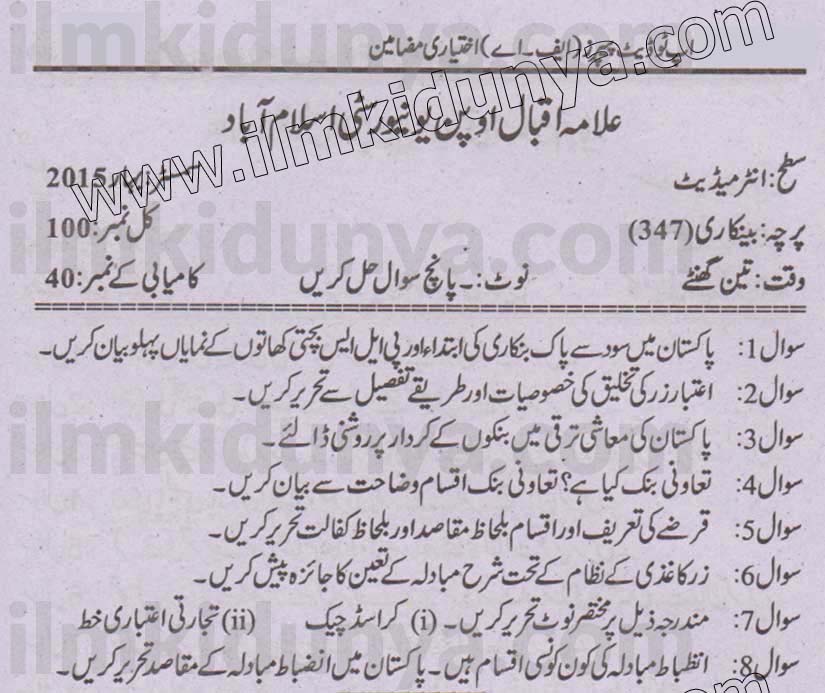 اپ ٹو ڈیٹ پیپرز (ایف۔اے) اختیاری مضامین
علامہ اقبال اوپن یونیورسٹی اسلام آباد
سطح: انٹرمیڈیٹ سمسٹر: بہار 2015
پرچہ: بینکاری (347) کل نمبر: 100
وقت: تین گھنٹے نوٹ:۔ پانچ سوال حل کریں کامیابی کے نمبر: 40
سوال 1: پاکستان میں سود سے پاک بنکاری کی ابتداء اور پی ایل ایس بچتی کھاتوں کے نمایاں پہلو بیان کریں۔
سوال 2: اعتبار زر کی تخلیق کی خصوصیات اور طریقے تفصیل سے تحریر کریں۔
سوال 3: پاکستان کی معاشی ترقی میں بنکوں کے کردار پر روشنی ڈالئے۔
سوال 4: تعاونی بنک کیا ہے؟ تعاونی بنک اقسام وضاحت سے بیان کریں۔
سوال 5: قرضے کی تعریف اور اقسام بلحاظ مقاصد اور بلحاظ کفالت تحریر کریں۔
سوال 6: زر کاغذی کے نظام کے تحت شرح مبادلہ کے تعین کا جائزہ پیش کریں۔
سوال 7: مندرجہ ذیل پر مختصر نوٹ تحریر کریں۔ (i) کراسڈ چیک (ii) تجارتی اعتباری خط
سوال 8: انظباط مبادلہ کی کون کونسی اقسام ہیں۔ پاکستان میں انضباط مبادلہ کے مقاصد تحریر کریں۔
www.ilmkidunya.com
ilmkidunya.com
ilmkidunya.com
ilmkidunya.com
ilmkidunya.com